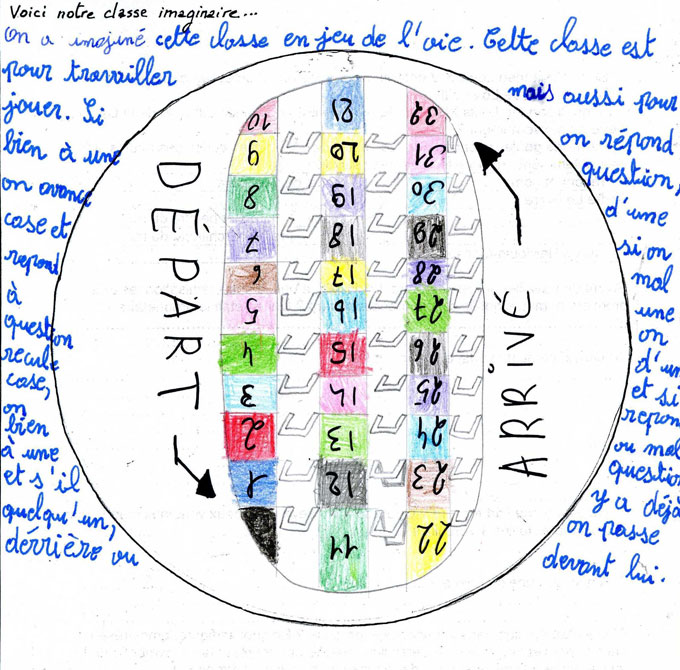 Voici notre classe imaginaire...
On a imajiné cette classe en jeu de l'oie. Cette classe est
pour travailler mais aussi pour
jouer. Si on répond
bien à une question,
on avance d'une
case et si on
repond mal
à une
question on
recule d'une
case, et si
on repond
bien ou mal
à une question
et s'il y a déjà
quelqu'un, on passe
dérrière ou devant lui.
DÉPART
1
2
3
4
5
6
7
8
9
10
11
12
13
14
15
16
17
18
19
20
21
22
23
24
25
26
27
28
29
30
31
32
ARRIVÉ